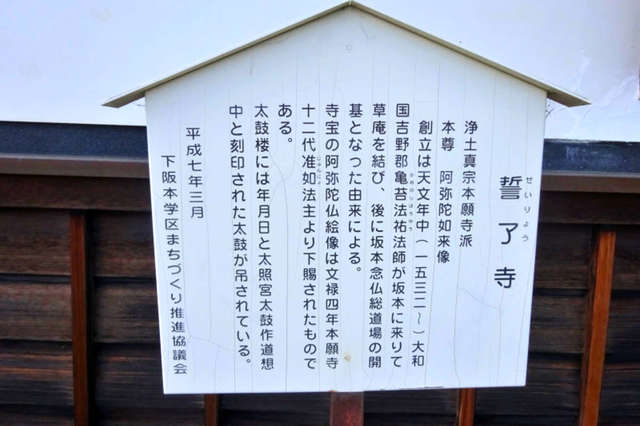 誓了寺
せいりょう
浄土真宗本願寺派
本尊 阿弥陀如来像
創立は天文年中(一五三二〜)大和
国吉野郡亀苔法祐法師が坂本に来りて
草庵を結び、後に坂本念仏総道場の開
基となった由来による。
寺宝の阿弥陀仏絵像は文禄四年本願寺
十二代准如法主より下賜されたもので
ある。
太鼓楼には年月日と太照宮太鼓作道想
中と刻印された太鼓が吊されている。
平成七年三月
下阪本学区まちづくり推進協議会